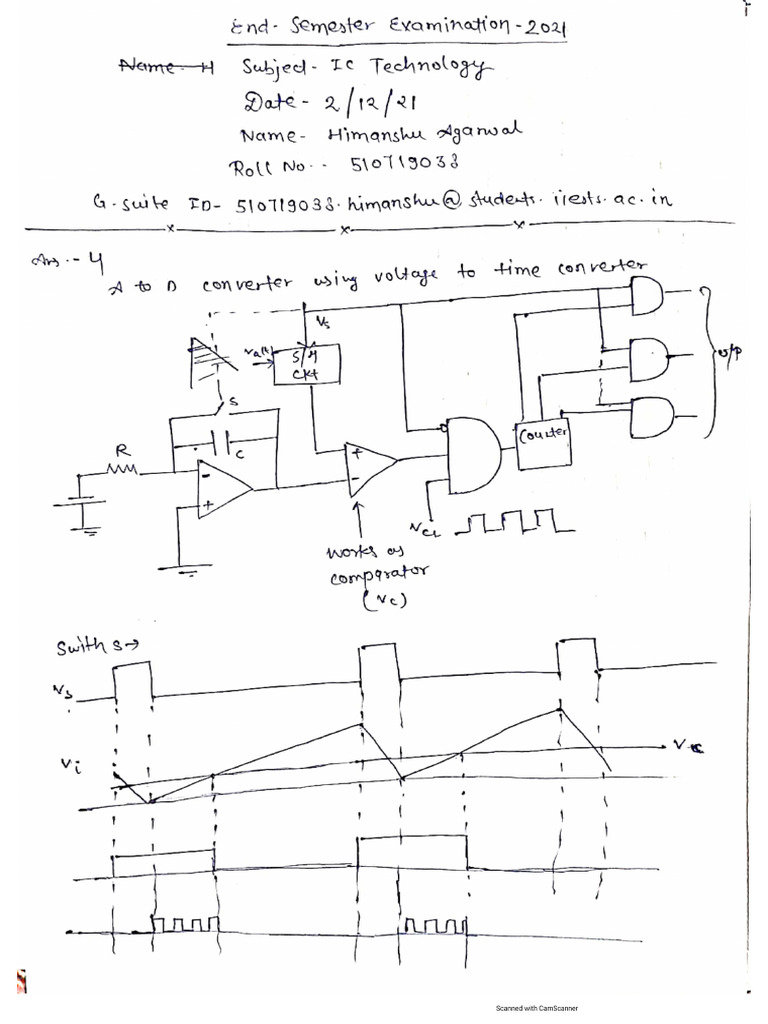 End- Semester Examination-2021
Name- H Subject- IC Technology
Date- 2/12/21
Name- Himanshu Agarwal
Roll No.- 510719038
G-suite ID- 510719038.himanshu@students.iiests.ac.in
Ans:- 4
A to D converter using voltage to time converter
Vs
Va(t)
S/H
ckt
O/P
S
R
C
Counter
-
+
+
-
VCL
Works as
comparator
(Vc)
Swith S→
Vs
Vi
Scanned with CamScanner